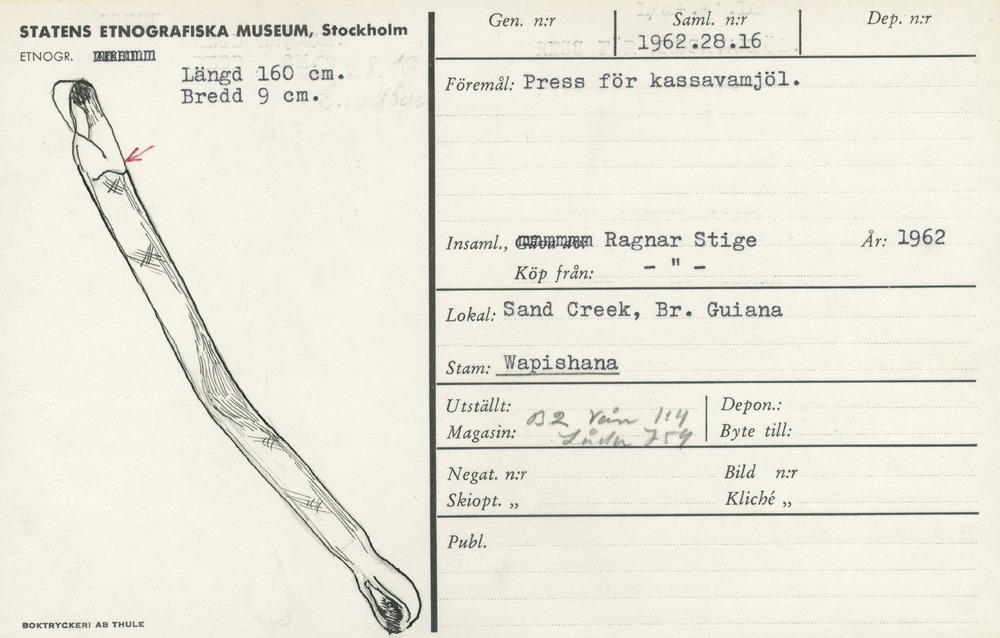 STATENS ETNOGRAFISKA MUSEUM, Stockholm
ETNOGR.
Längd 160 cm.
Bredd 9 cm.
BOKTRYCKERI AB THULE
Gen. n:r Saml. n:r Dep. n:r
1962.28.16
Föremål: Press för kassavamjöl.
Insaml., Ragnar Stige År: 1962
Köp från: - " -
Lokal: Sand Creek, Br. Guiana
Stam: Wapishana
Utställt: Depon.:
B2 Vån 1:4
Magasin: Låda 759 Byte till:
Negat. n:r Bild n:r
Skiopt. „ Kliché „
Publ.